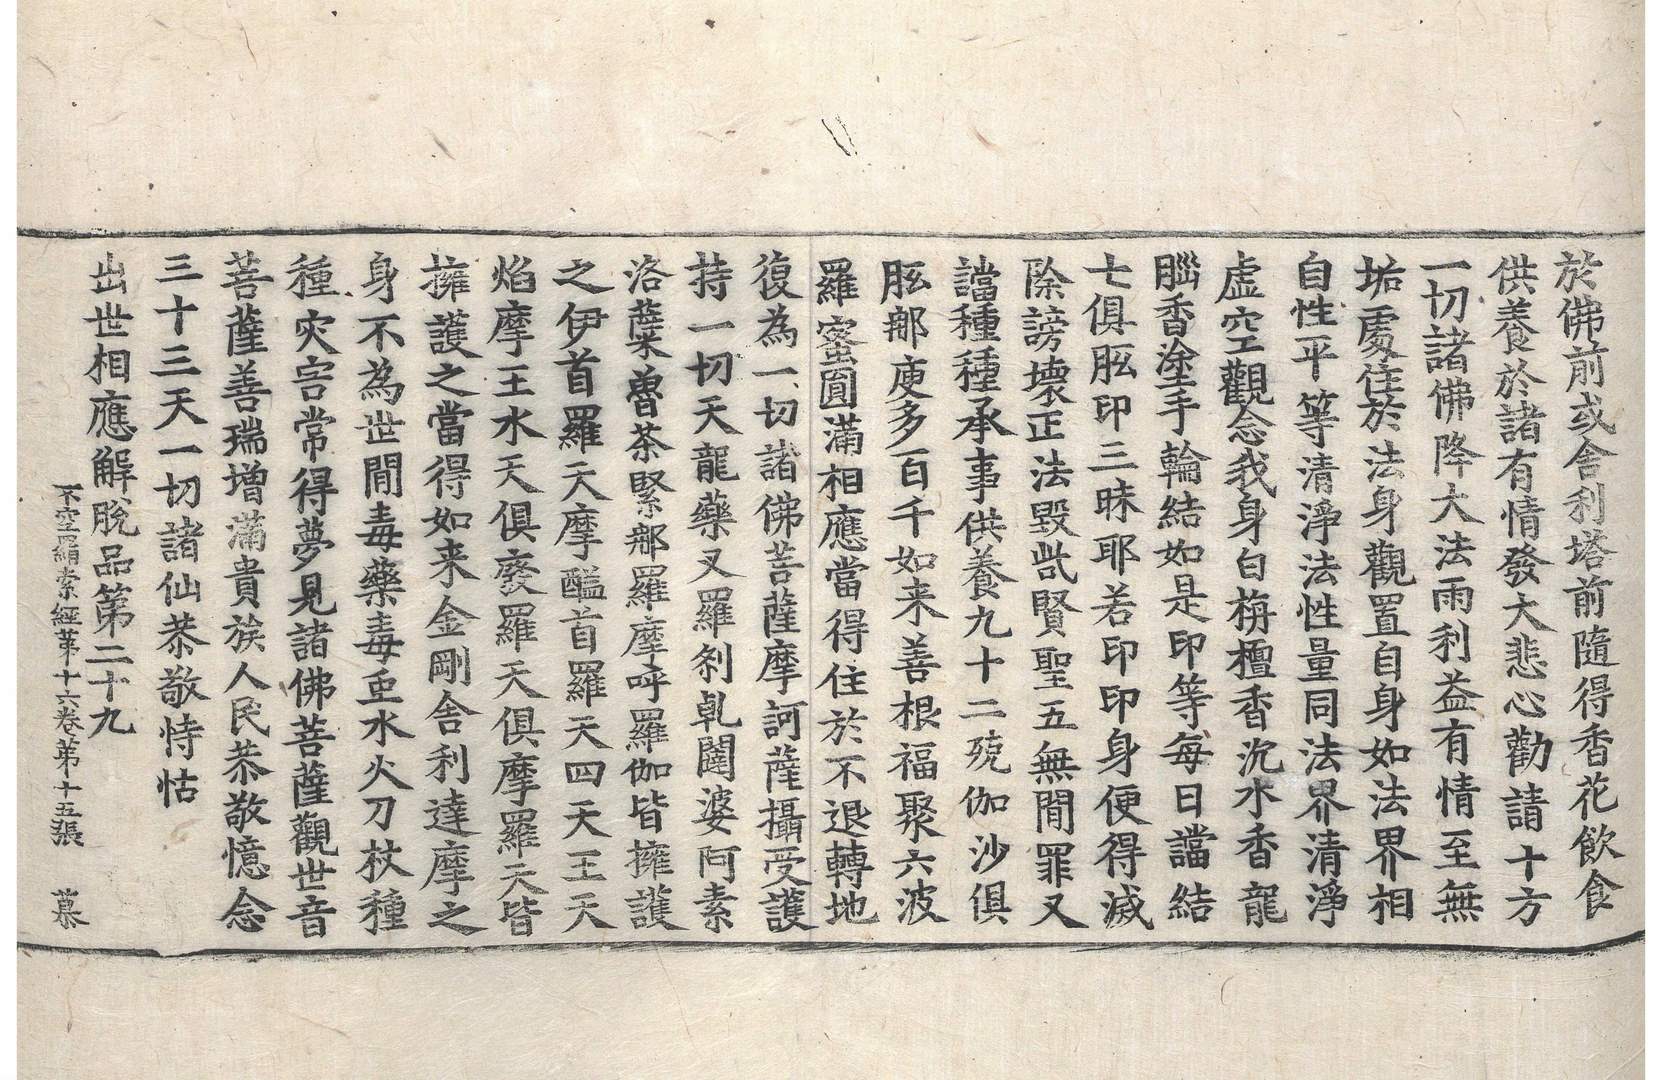 於佛前或舍利塔前隨得香花飲食
供養於諸有情發大悲心勸請十方
一切諸佛降大法雨利益有情至無
垢處住於法身觀置自身如法界相
自性平等清淨法性量同法界清淨
虛空觀念我身白栴檀香沉水香龍
腦香塗手輪結如是印等每日諠結
七俱胝印三昧耶若印印身便得滅
除謗壞正法毀呰賢聖五無間罪又
諠種種承事供養九十二殑伽沙俱
胝那庾多百千如来善根福聚六波
羅蜜圓滿相應當得住於不退轉地
復為一切諸佛菩薩摩訶薩攝受護
持一切天龍藥叉羅剎乹闥婆阿素
洛薩㭰魯荼緊那羅摩呼羅伽皆擁護
之伊首羅天摩醯首羅天四天王天
焰摩王水天俱廢羅天俱摩羅天皆
擁護之當得如来金剛舍利達摩之
身不為世間毒藥毒虫水火刀杖種
種灾害常得夢見諸佛菩薩觀世音
菩薩善瑞增滿貴族人民恭敬憶念
三十三天一切諸仙恭敬恃怙
出世相應解脫品第二十九
不空羂索經第十六卷第十五張 慕